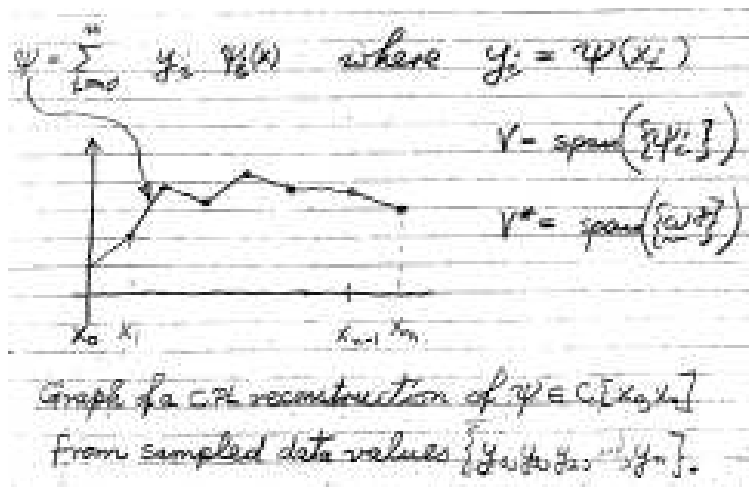 ψ = Σ_{i=0}^{n} y_i ψ_i(x) where y_i = ψ(x_i)
V = span({ψ_i})
V* = span({ω^i})
x_0 x_1 x_{n-1} x_n
Graph of a CPL reconstruction of ψ ∈ C[x_0, x_n]
from sampled data values {y_0, y_1, y_2, ..., y_n}.